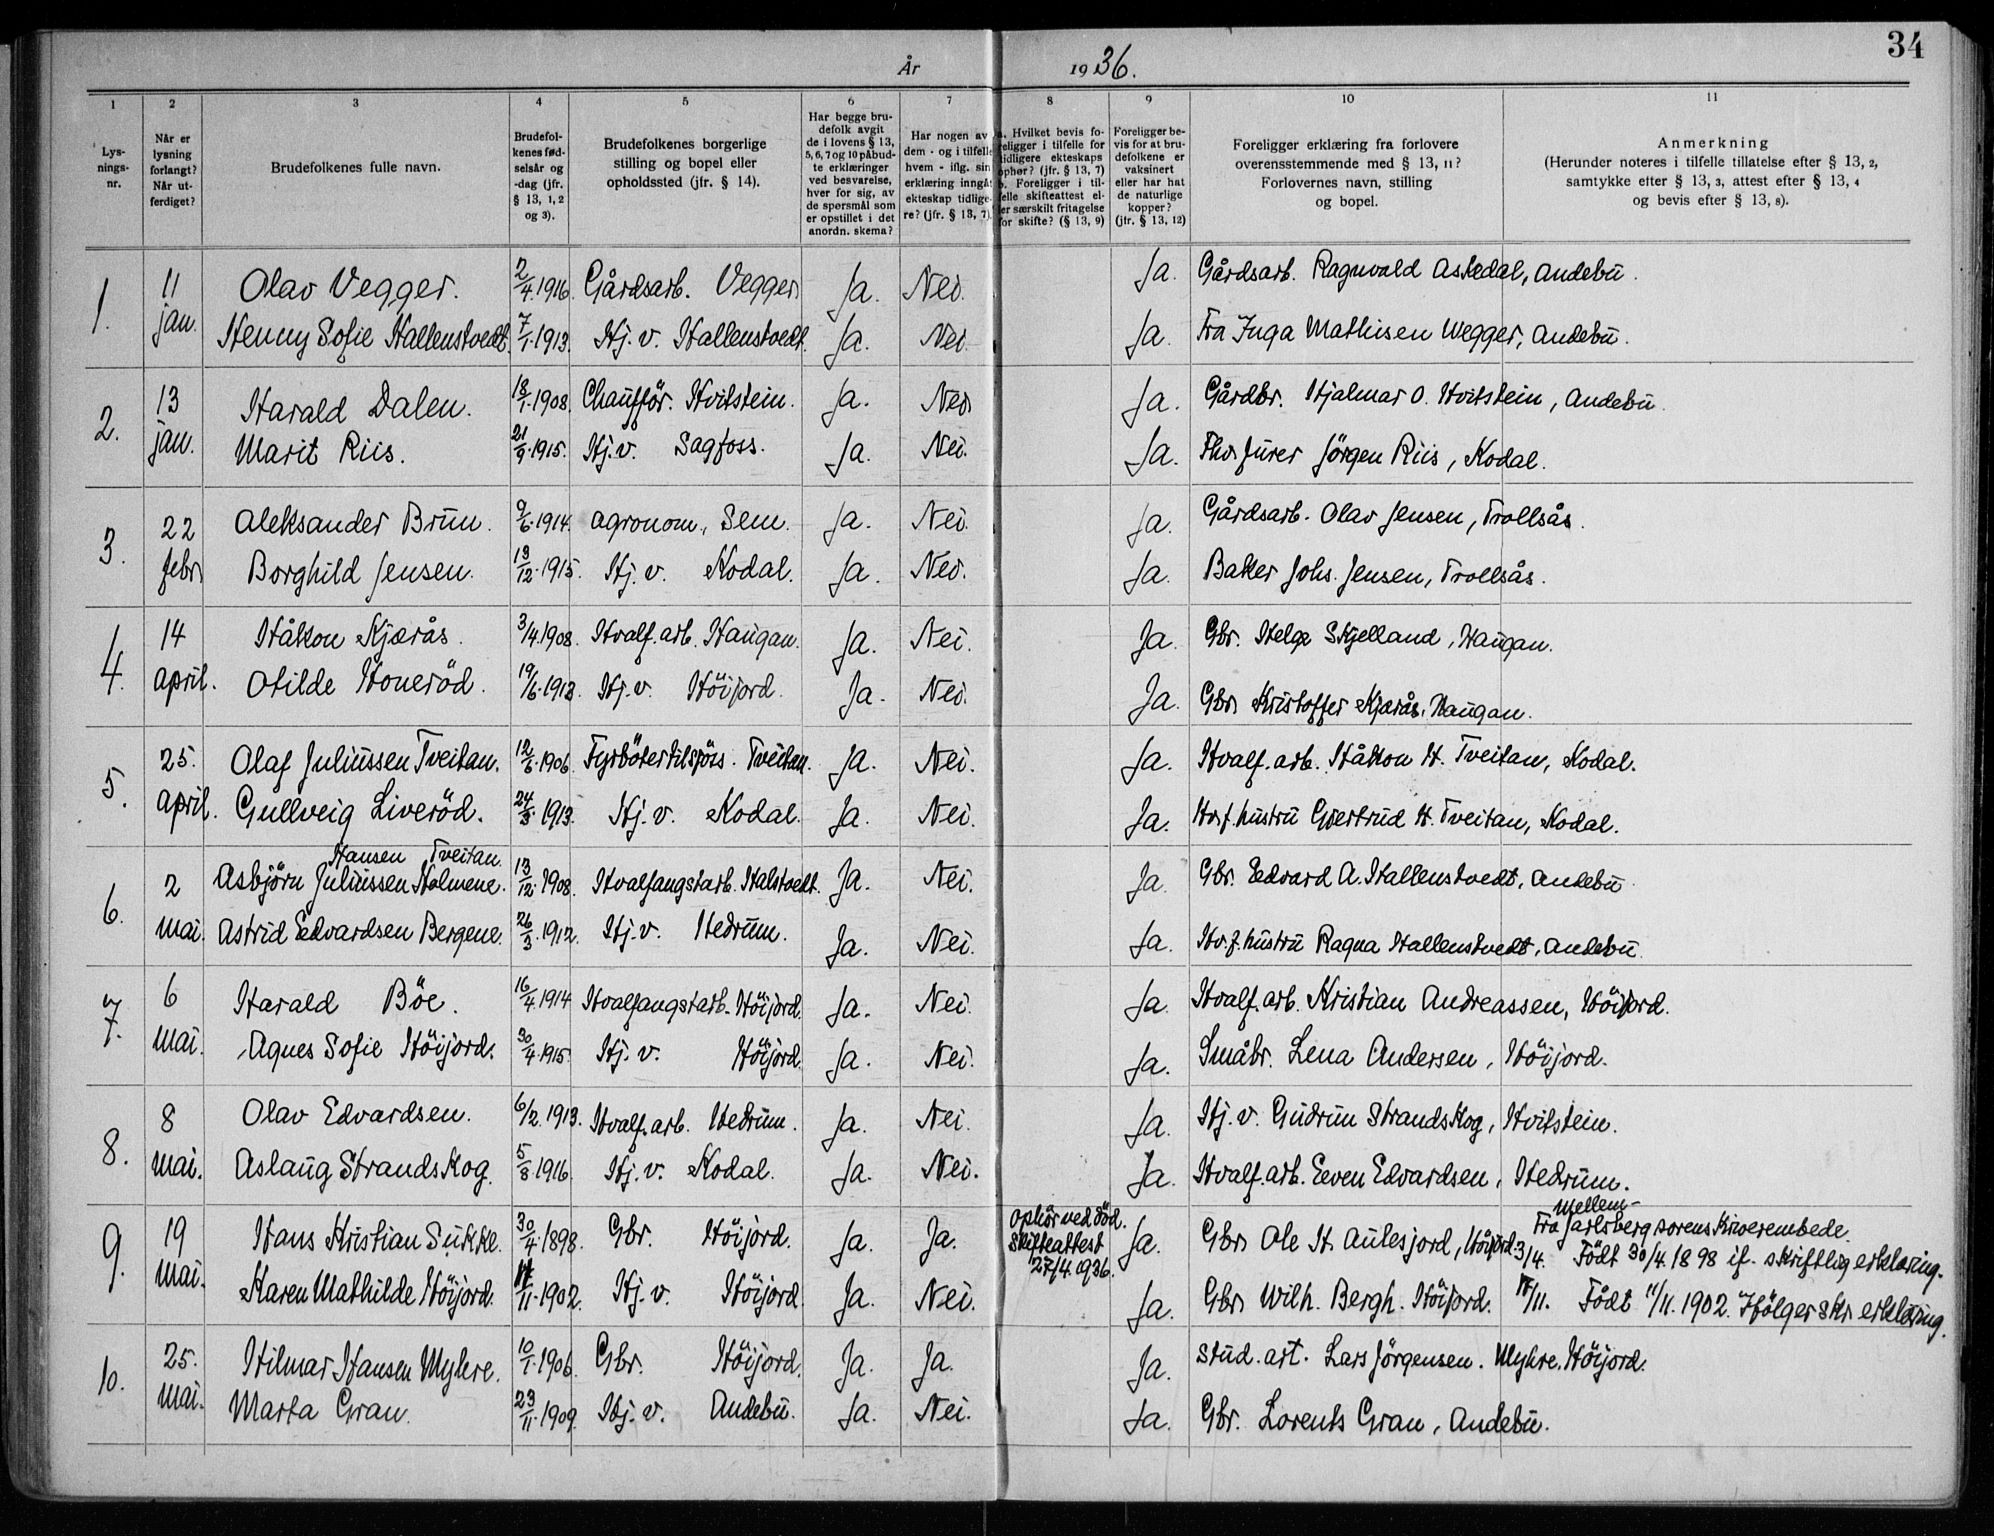 34
År 1936.
1 2 3 4 5 6 7 8 9 10 11
Lys-
nings-
nr.
Når er
lysning
forlangt?
Når ut-
ferdiget?
Brudefolkenes fulle navn.
Brudefol-
kenes fød-
selsår og
-dag (jfr.
§ 13, 1, 2
og 3).
Brudefolkenes borgerlige
stilling og bopel eller
opholdssted (jfr. § 14).
Har begge bru-
defolk avgit
de i lovens § 13,
5, 6, 7 og 10 påbud-
te erklæringer
ved besvarelse,
hver for sig, av
de spørsmål som
er opstillet i det
anordn. skema?
Har nogen av
dem - og i tilfelle
hvem - iflg. sin
erklæring inngåt
ekteskap tidlige-
re? (jfr. § 13, 7).
a. Hvilket bevis fo-
religger i tilfelle for
tidligere ekteskaps
ophør? (jfr. § 13, 7)
b. Foreligger i til-
felle skifteattest el-
ler særskilt fritagelse
for skifte? (§ 13, 9)
Foreligger be-
vis for at bru-
defolkene er
vaksinert
eller har hat
de naturlige
kopper?
(jfr. § 13, 12)
Foreligger erklæring fra forlovere
overensstemmende med § 13, 11?
Forlovernes navn, stilling
og bopel.
Anmerkning
(Herunder noteres i tilfelle tillatelse efter § 13, 2,
samtykke efter § 13, 3, attest efter § 13, 4
og bevis efter § 13, 8).
1. 11 jan. Olav Vegger. 2/4.1916. Gårdsarb. Vegger Ja. Nei. Ja. Gårdsarb. Ragnvald Askedal, Andebu.
Henny Sofie Hallenstvedt. 7/1.1913. Hj. v. Hallenstvedt. Ja. Nei. Ja. Fra Inga Mathisen Wegger, Andebu.
2. 13 jan. Harald Dalen. 18/1.1908. Chaufför. Hvitstein. Ja. Nei Ja. Gårdbr. Hjalmar O. Hvitstein, Andebu.
Marit Riis. 21/9.1915. Hj. v. Sagfoss. Ja. Nei. Ja. Jörgen Riis, Kodal.
3. 22 febr. Aleksander Brun. 9/6.1914. Agronom, Sem. Ja. Nei. Ja. Gårdsarb. Olav Jensen, Trollsås.
Borghild Jensen. 13/12.1915. Hj. v. Kodal. Ja. Nei. Ja. Baker Johs. Jensen, Trollsås.
4. 14 april. Håkon Kjærås. 3/4.1908. Hvalf. arb. Haugan. Ja. Nei. Ja. Gbr. Helge Skjelland, Haugan.
Otilde Honeröd. 19/6.1913. Hj. v. Höijord. Ja. Nei. Ja. Gbr. Kristoffer Kjærås, Haugan.
5. 25. april. Olaf Juliussen Tveitan. 12/6.1906. Fyrböter tilsjös. Tveitan. Ja. Nei. Ja. Hvalf. arb. Håkon H. Tveitan, Kodal.
Gullveig Liveröd. 24/3.1913. Hj. v. Kodal. Ja. Nei. Ja. Hvf. hustru Gjertrud H. Tveitan, Kodal.
Hansen Tveitan.
6. 2 mai. Asbjörn Juliussen Holmene. 13/12.1908. Hvalfangstarb. Halstvedt. Ja. Nei. Ja. Gbr. Edvard A. Hallenstvedt, Andebu.
Astrid Edvardsen Bergene. 26/3.1912. Hj. v. Hedrum. Ja. Nei. Ja. Hvf. hustru Ragna Hallenstvedt, Andebu.
7. 6 mai. Harald Böe. 16/4.1914 Hvalfangstarb. Höijord. Ja. Nei. Ja. Hvalf. arb. Kristian Andreassen, Höijord.
Agnes Sofie Höijord. 30/4.1915. Hj. v. Höijord. Ja. Nei. Ja. Småbr. Lena Andersen, Höijord.
8. 8 mai. Olav Edvardsen. 6/2.1913. Hvalf. arb. Hedrum. Ja. Nei. Ja. Hj. v. Gudrun Strandskog, Hvitstein.
Aslaug Strandskog. 5/8.1916. Hj. v. Kodal. Ja. Nei. Ja. Hvalf. arb. Even Edvardsen, Hedrum.
9. 19 mai. Hans Kristian Sukke. 30/4.1898. Gbr. Höijord. Ja. Ja. Ophör ved död. Skifteattest 27/4.1936. Ja. Gbr. Ole H. Aulesjord, Höijord. Fra Mellem-Jarlsberg sorenskriverembede. 3/4. Födt 30/4.1898 if. skriftlig erklæring.
Karen Mathilde Höijord. 11/11.1902. Hj. v. Höijord. Ja. Nei. Ja. Gbr. Wilh. Bergh. Höijord. 11/11. Födt 11/11.1902. Ifölge skr. erklæring.
10. 25. mai. Hilmar Hansen Myhre. 10/1.1906. Gbr. Höijord. Ja. Ja. Ja. Stud. art. Lars Jörgensen. Myhre. Höijord.
Marta Gran. 23/11.1909. Hj. v. Andebu. Ja. Nei. Ja. Gbr. Lorents Gran, Andebu.